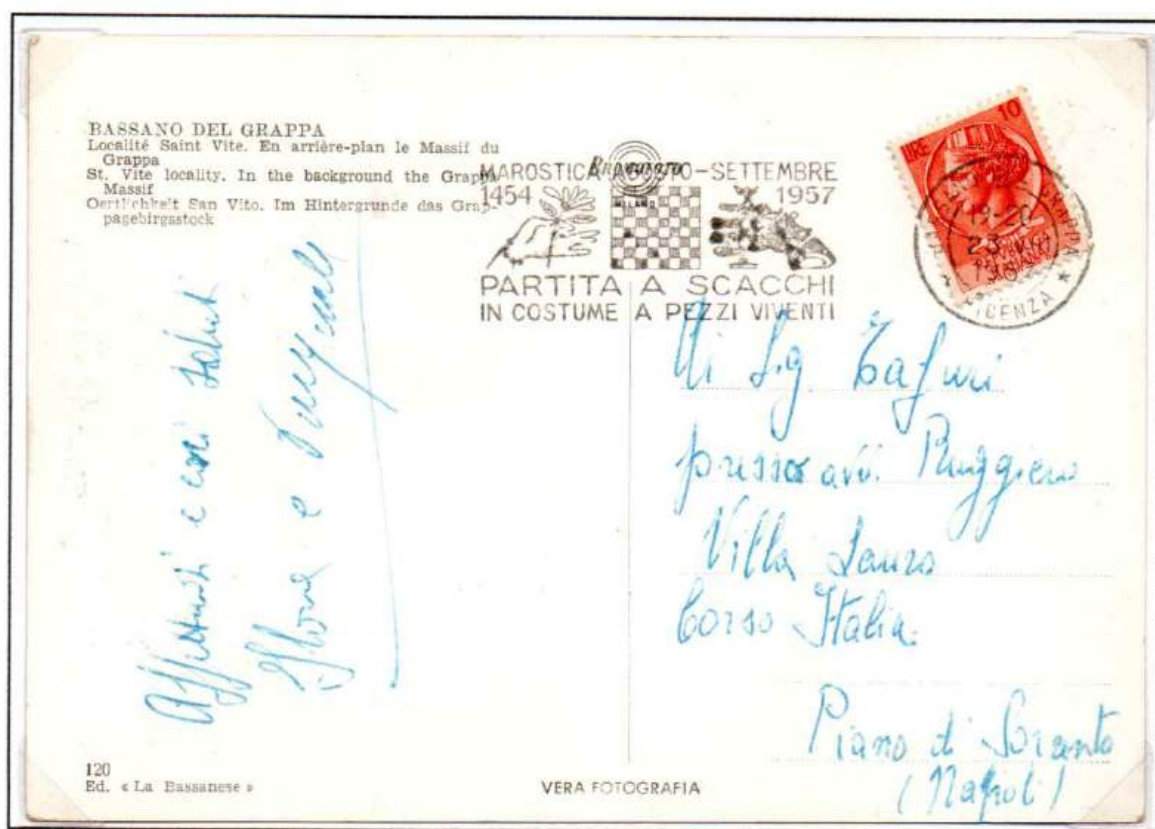 BASSANO DEL GRAPPA
Localité Saint Vite. En arrière-plan le Massif du
Grappa
St. Vite locality. In the background the Grappa
Massif
Oertlichkeit San Vito. Im Hintergrunde das Grap-
pagebirgsstock
MAROSTICA AGOSTO-SETTEMBRE
1454 1957
MILANO
PARTITA A SCACCHI
IN COSTUME A PEZZI VIVENTI
LIRE 10
19-20
23
VICENZA
Affettuosi e cari saluti
e
Sig Tafuri
presso avv. Ruggiero
Villa Laura
Corso Italia
Piano di Sorrento
(Napoli)
120
Ed. « La Bassanese »
VERA FOTOGRAFIA